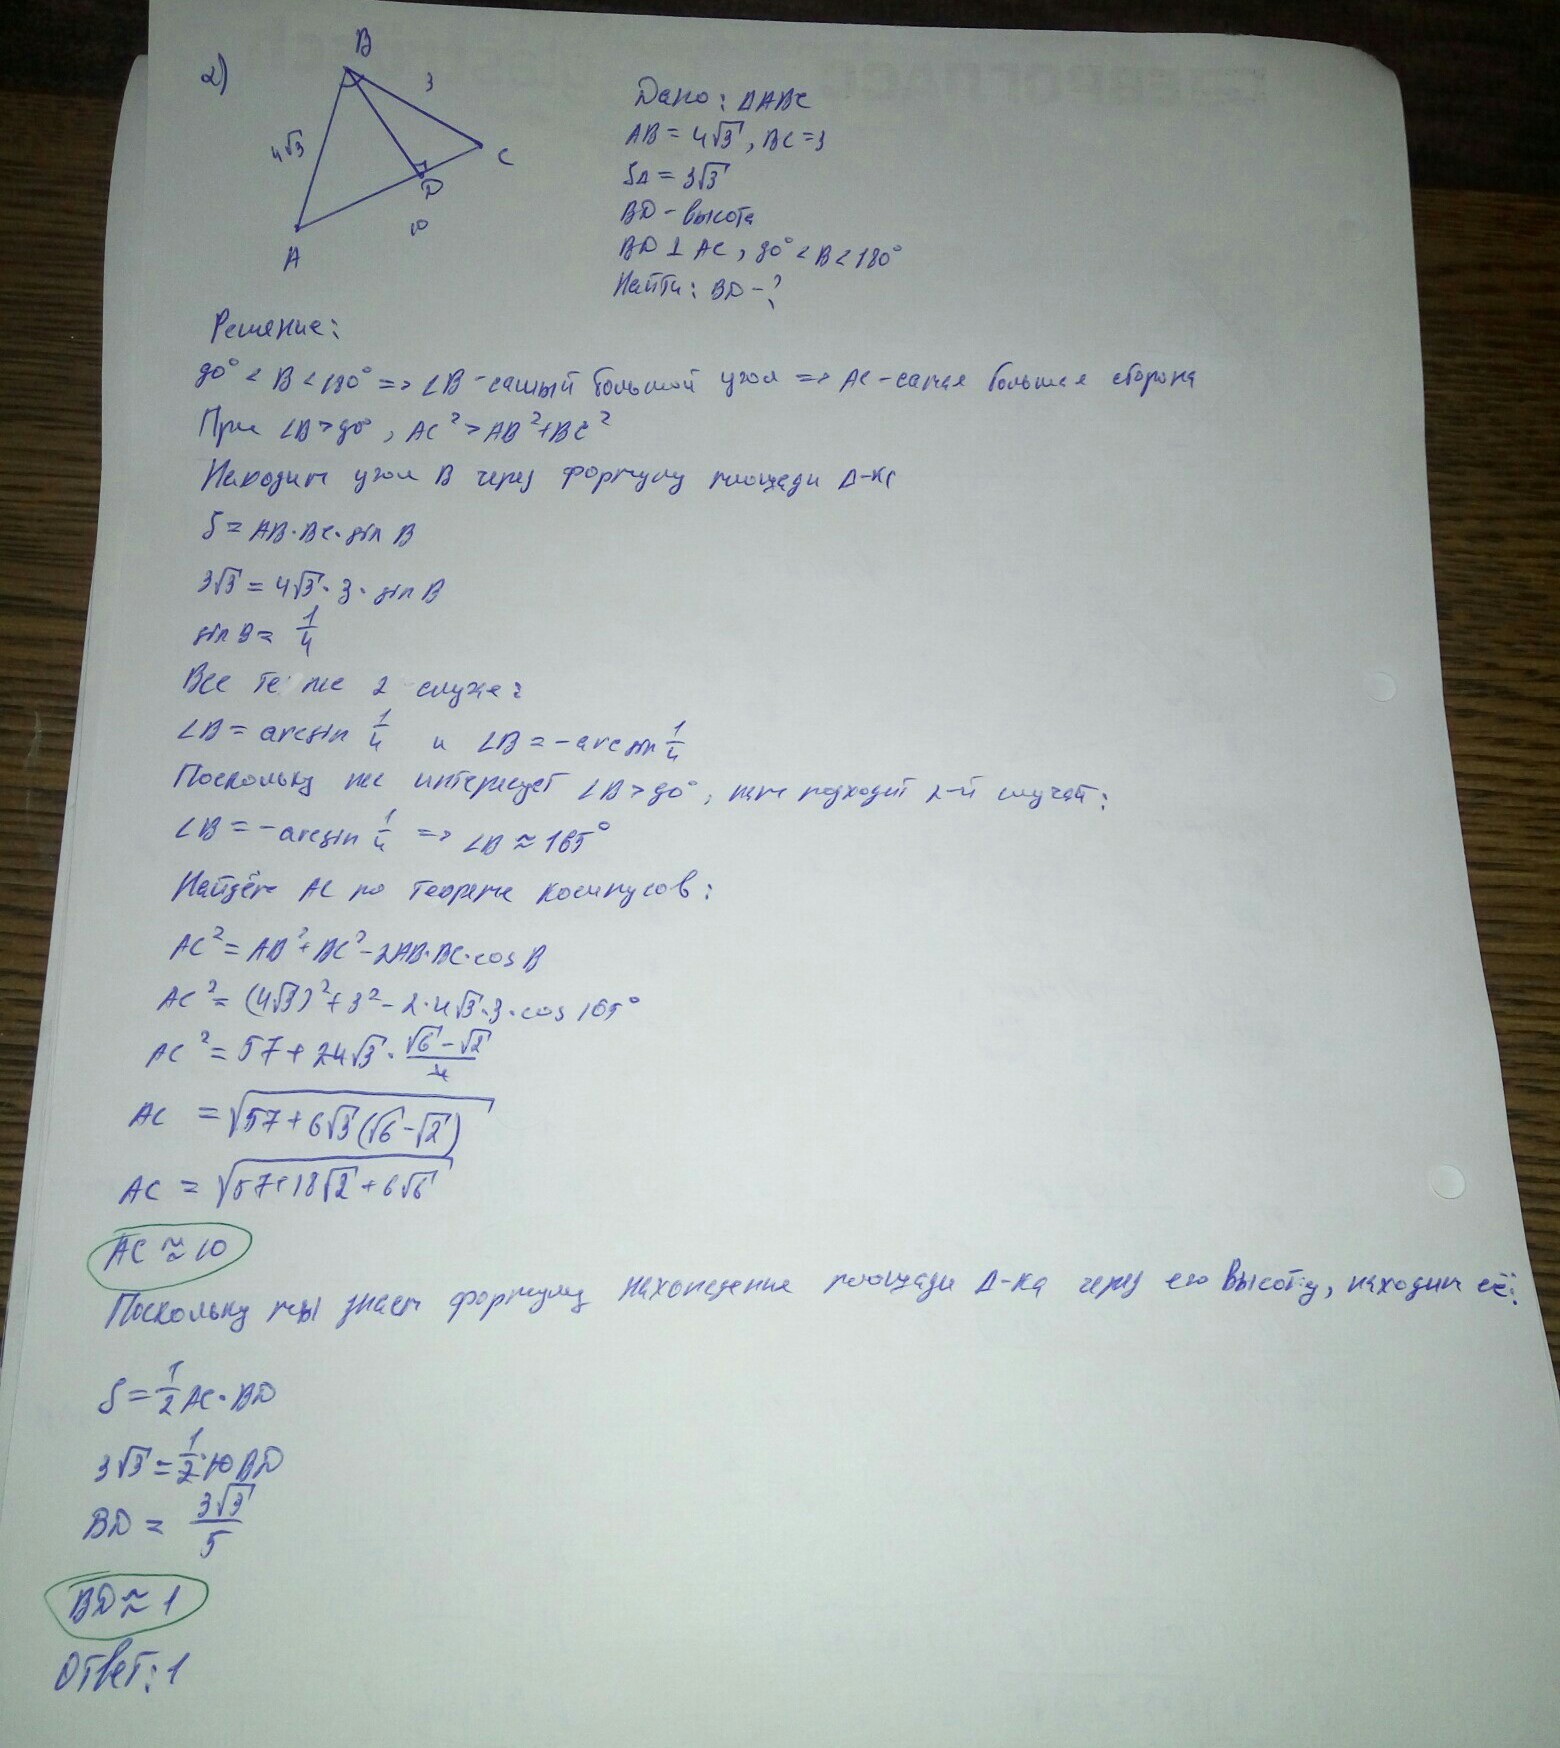 2)
B
3
4√3
C
D
10
A
Дано: ΔABC
AB = 4√3, BC = 3
SΔ = 3√3
BD - высота
BD ⊥ AC, 90° < B < 180°
Найти: BD - ?
Решение:
90° < B < 180° => ∠B - самый большой угол => AC - самая большая сторона
При ∠B > 90°, AC² > AB² + BC²
Находим угол B через формулу площади Δ-ка
S = AB · BC · sin B
3√3 = 4√3 · 3 · sin B
sin B = 1/4
Все те же 2 случае:
∠B = arcsin 1/4 и ∠B = -arcsin 1/4
Поскольку же интересует ∠B > 90°, нам подходит 2-й случай:
∠B = -arcsin 1/4 => ∠B ≈ 165°
Найдём AC по теореме косинусов:
AC² = AB² + BC² - 2AB · BC · cos B
AC² = (4√3)² + 3² - 2 · 4√3 · 3 · cos 165°
AC² = 57 + 24√3 · (√6 - √2)/4
AC = √(57 + 6√3(√6 - √2))
AC = √(57 + 18√2 + 6√6)
AC ≈ 10
Поскольку мы знаем формулу нахождения площади Δ-ка через его высоту, находим её:
S = 1/2 AC · BD
3√3 = 1/2 · 10 BD
BD = 3√3/5
BD ≈ 1
Ответ: 1